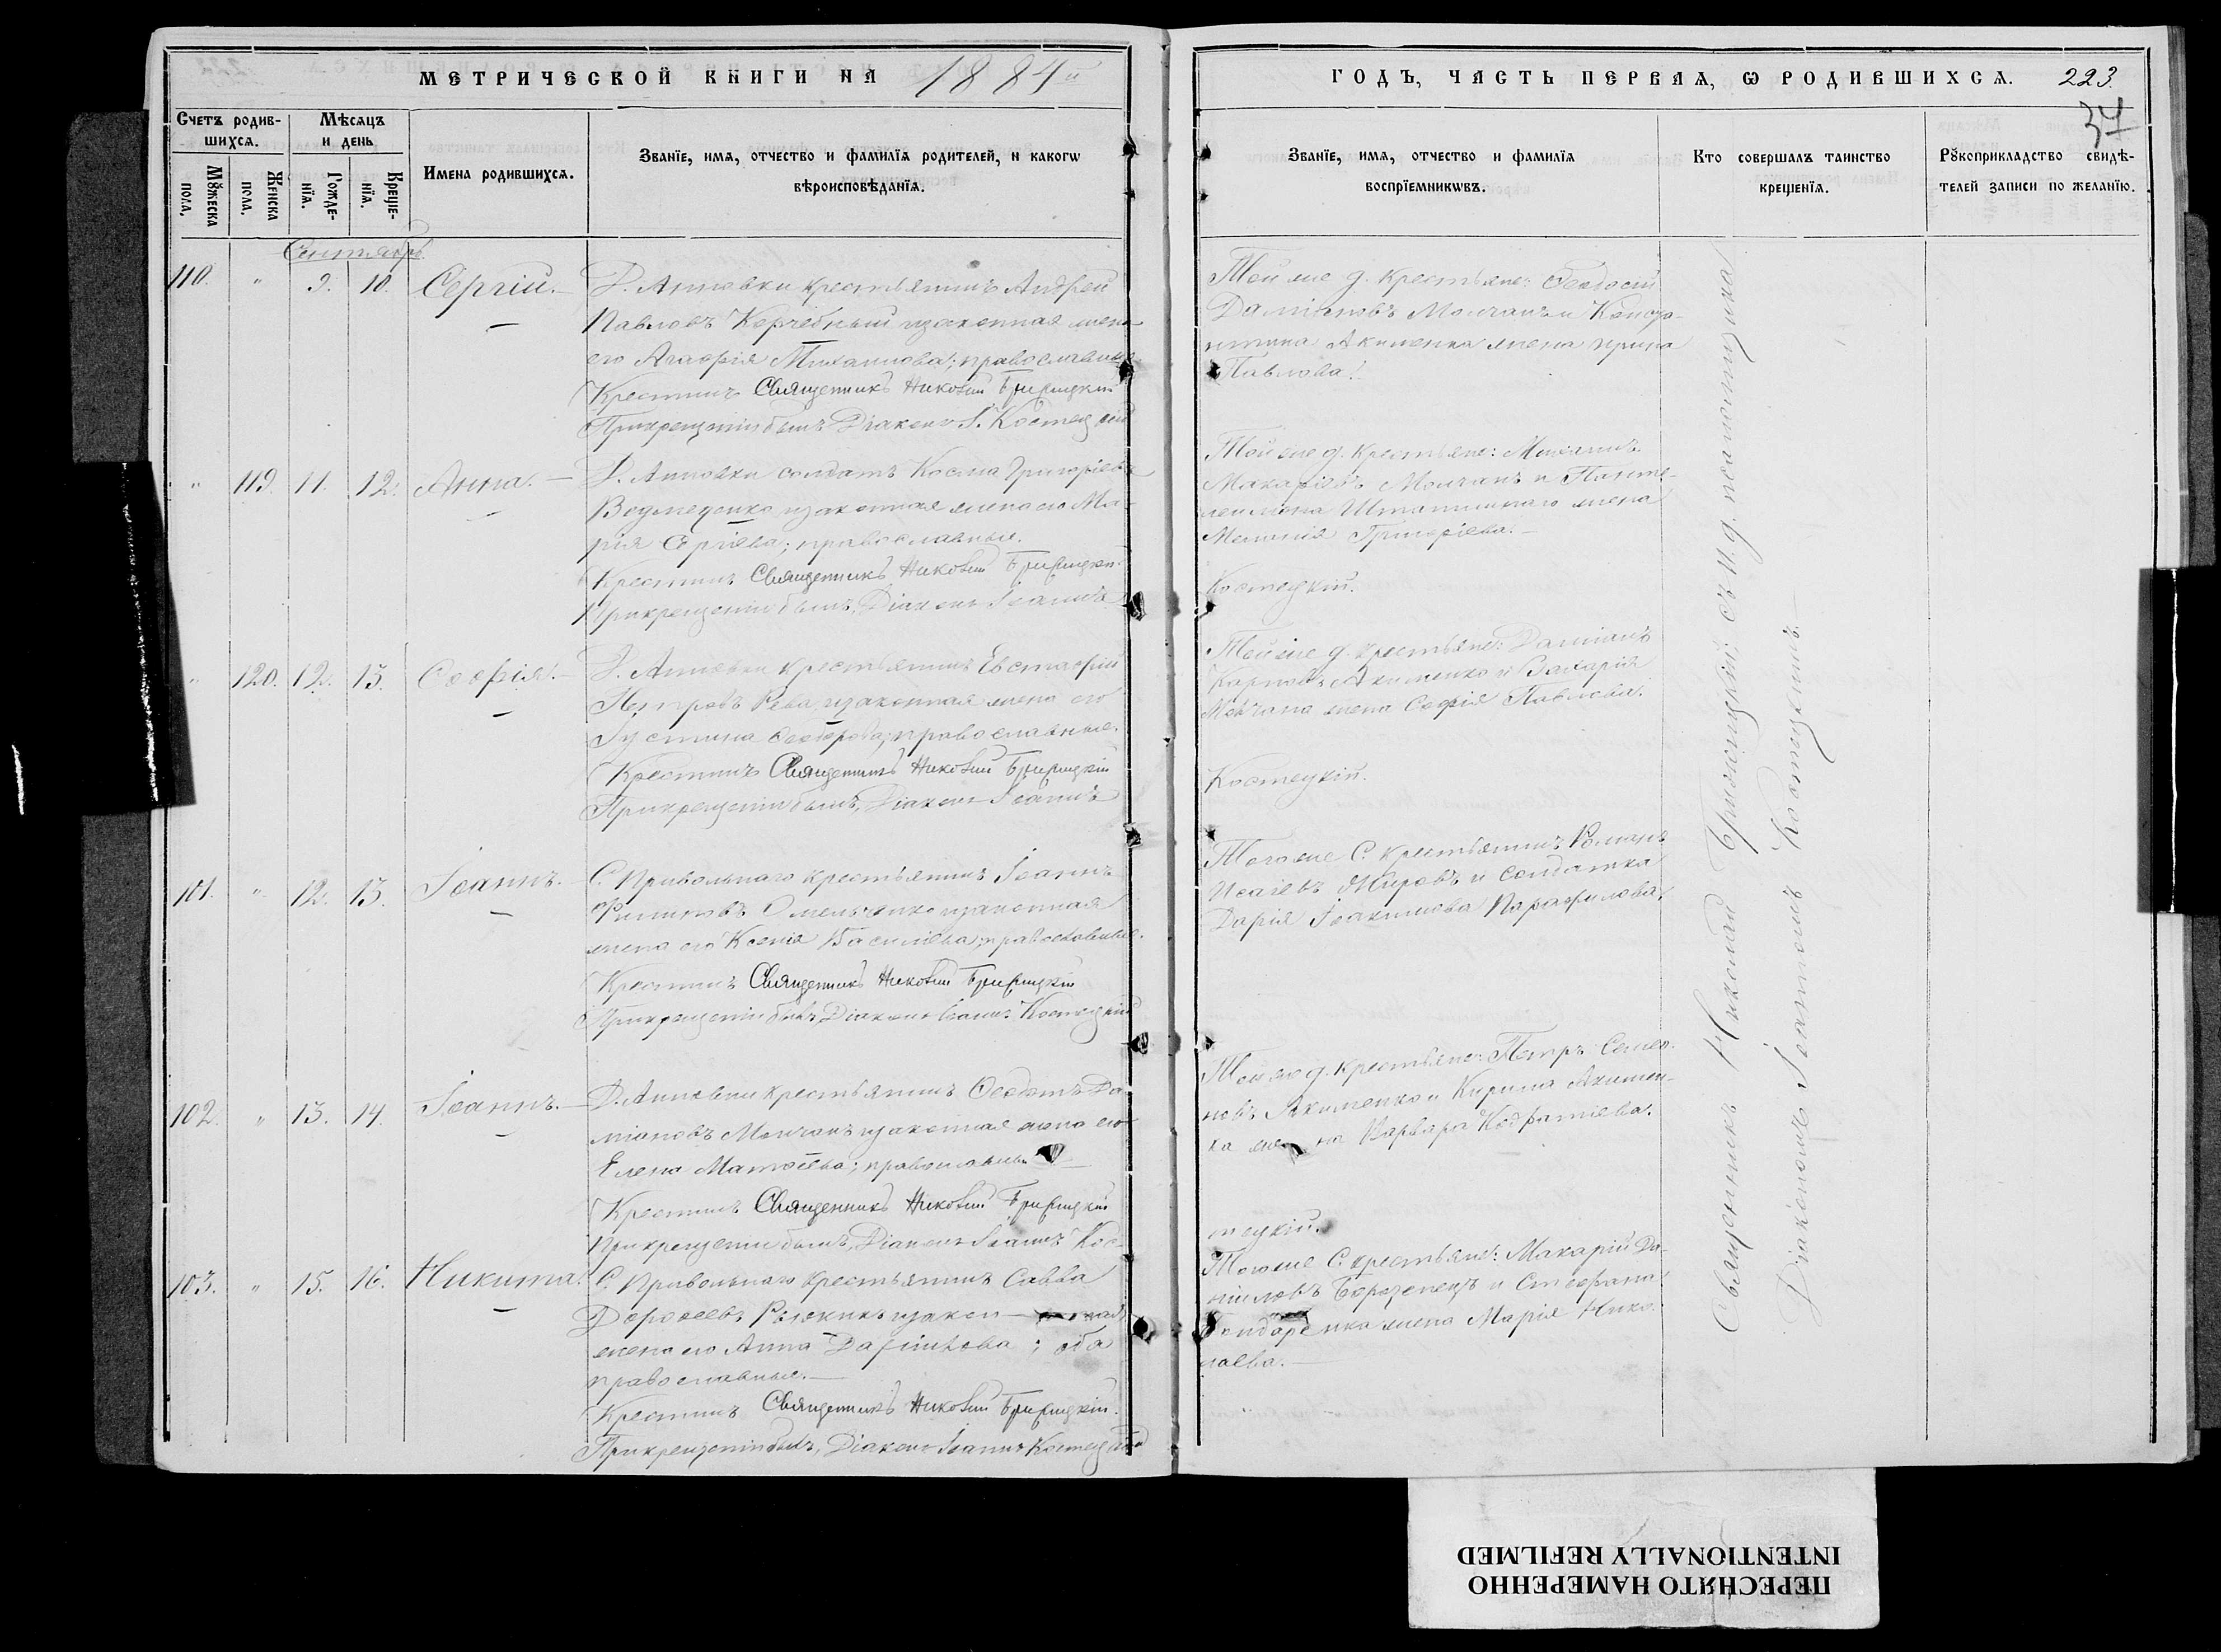 МЕТРИЧЕСКОЙ КНИГИ НА 1884й
ГОДЪ, ЧАСТЬ ПЕРВАЯ, Ѡ РОДИВШИХСЯ. 223.
37
Счетъ родив-
шихся.
Мꙋжеска
пола.
Женска
пола.
Мѣсяцъ
и день
Рожде-
нїя.
Креще-
нїя.
Имена родившихся.
Званїе, имя, отчество и фамилїя родителей, и какогѡ
вѣроисповѣданїя.
Званїе, имя, отчество и фамилїя
воспрїемникѡвъ.
Кто совершалъ таинство
крещенїя.
Рꙋкоприкладство свидѣ-
телей записи по желанїю.
Сентябрь
110. " 9. 10. Сергій.
Д. Анновки крестьянинъ Андрей
Павловъ Корчебный и законная жена
его Агафія Михаилова; православные
Крестилъ Священникъ Николай
При крещеніи былъ Діаконъ І. Костецкій
Той же д. крестьяне: Феодосій
Даміановъ Молчанъ и Конста-
нтина Акименка жена Ирина
Павлова.
" 119. 11. 12. Анна.
Д. Анновки солдатъ Косма Григоріевъ
и законная жена его Ма-
рія Сергіева; православные.
Крестилъ Священникъ Николай
При крещеніи былъ, Діаконъ Іоаннъ
Той же д. крестьяне: Михаилъ
Макаріевъ Молчанъ и Панте-
леимона жена
Меланія Григоріева.
Костецкій.
" 120. 12. 13. Софія.
Д. Анновки крестьянинъ Евстафій
Петровъ Рева и законная жена его
Іустина Феодорова; православные.
Крестилъ Священникъ Николай
При крещеніи былъ, Діаконъ Іоаннъ
Той же д. крестьяне: Даміанъ
Карповъ Акименко и Захарія
Молчана жена Софія Павлова.
Костецкій.
101. " 12. 13. Іоаннъ.
С. Привольнаго крестьянинъ Іоаннъ
Филиповъ Омельченко и законная
жена его Ксенія Василіева; православные.
Крестилъ Священникъ Николай
При крещеніи былъ Діаконъ Іоаннъ Костецкій
Того же С. крестьянинъ Романъ
Исаіевъ Жировъ и солдатка
Дарія Іоакимова
102. " 13. 14. Іоаннъ.
Д. Анновки крестьянинъ Феодотъ Да-
міановъ Молчанъ и законная жена его
Елена Матѳеева; православные
Крестилъ Священникъ Николай
При крещеніи былъ, Діаконъ Іоаннъ Кос-
Той же д. крестьяне: Петръ Семео-
новъ Акименко и Кирила Акимен-
ка жена Варвара Кодратіева.
тецкій.
103. " 15. 16. Никита.
С. Привольнаго крестьянинъ Савва
Дороѳеевъ и закон-ная
жена его Анна; оба
православные.
Крестилъ Священникъ Николай
При крещеніи былъ, Діаконъ Іоаннъ Костецкій
Того же С. крестьяне: Макарій Да-
ніиловъ Березенецъ и Стефана
Бондаренка жена Марія Нико-
лаева.
Священникъ Николай съ и. д. псаломщика
Діакономъ Іоанномъ Костецкимъ.
ПЕРЕСНЯТО НАМЕРЕННО
INTENTIONALLY REFILMED